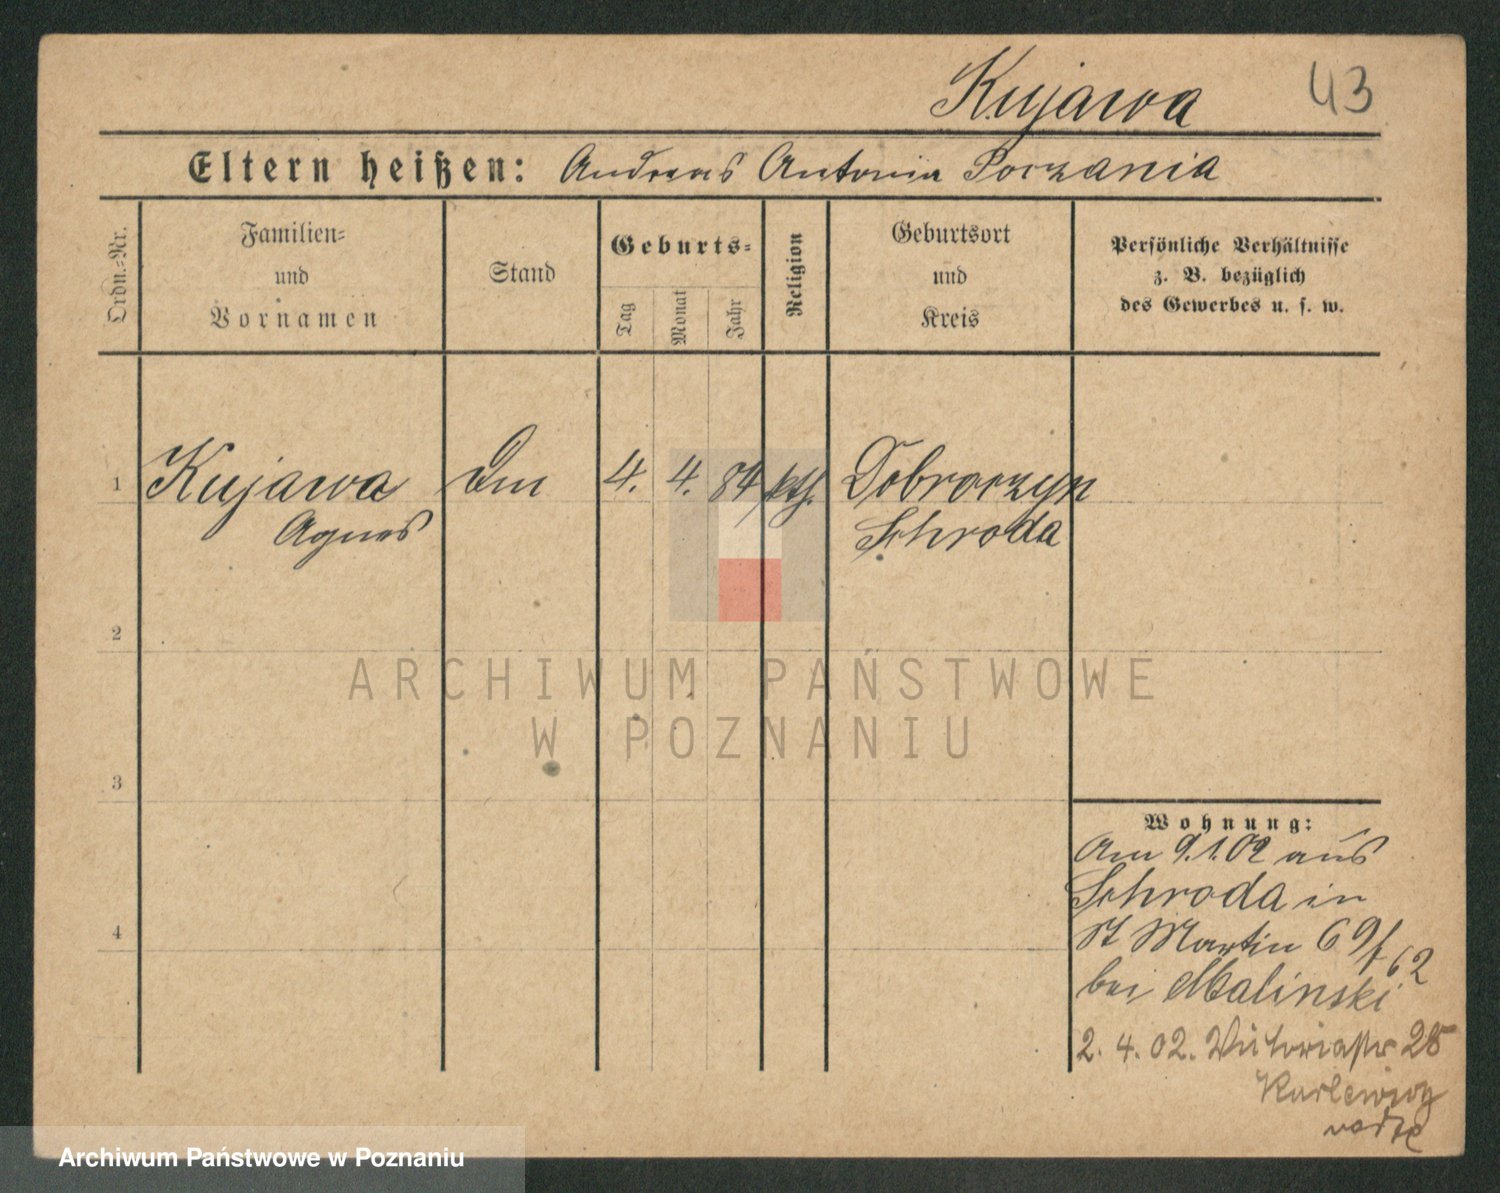 Kujawa 43
Eltern heißen: Andreas Antonia Porzania
Ordn.-Nr.
Familien-
und
Vornamen
Stand
Geburts-
Tag
Monat
Jahr
Religion
Geburtsort
und
Kreis
Persönliche Verhältnisse
z. B. bezüglich
des Gewerbes u. s. w.
1 Kujawa 4. 4. 84 kth. Dobroczyn
Agnes Schroda
2
3
4
ARCHIWUM PAŃSTWOWE
W POZNANIU
Wohnung:
Am 9.1.02 aus
Schroda in
St Martin 69/62
bei Malinski
2. 4. 02. Victoriastr 25
Archiwum Państwowe w Poznaniu